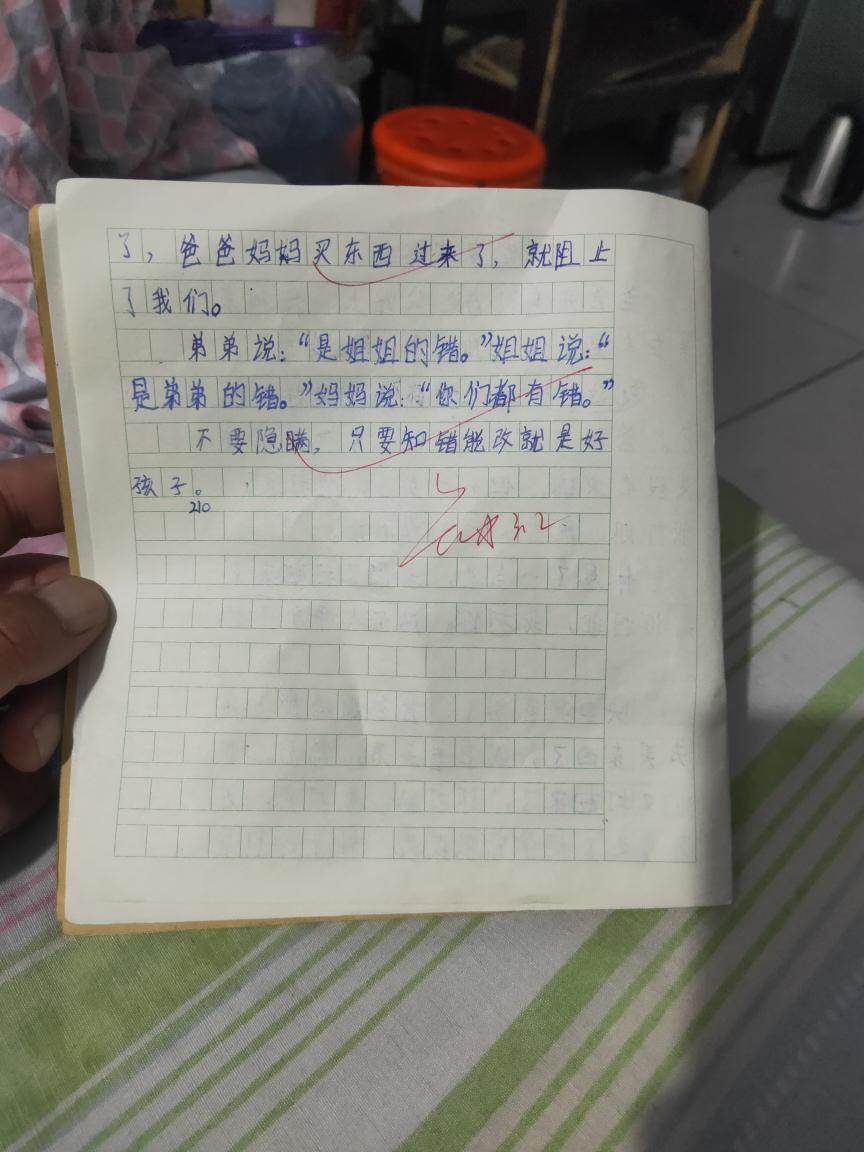 了，爸爸妈妈买东西过来了，就阻上
了我们。
弟弟说：“是姐姐的错。”姐姐说：“
是弟弟的错。”妈妈说：“你们都有错。”
不要隐瞒，只要知错能改就是好
孩子。
210